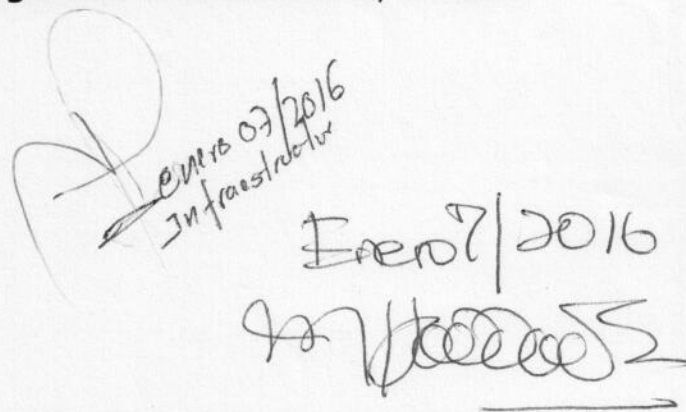 enero 07/2016
Infraestructur
Enero 7/2016